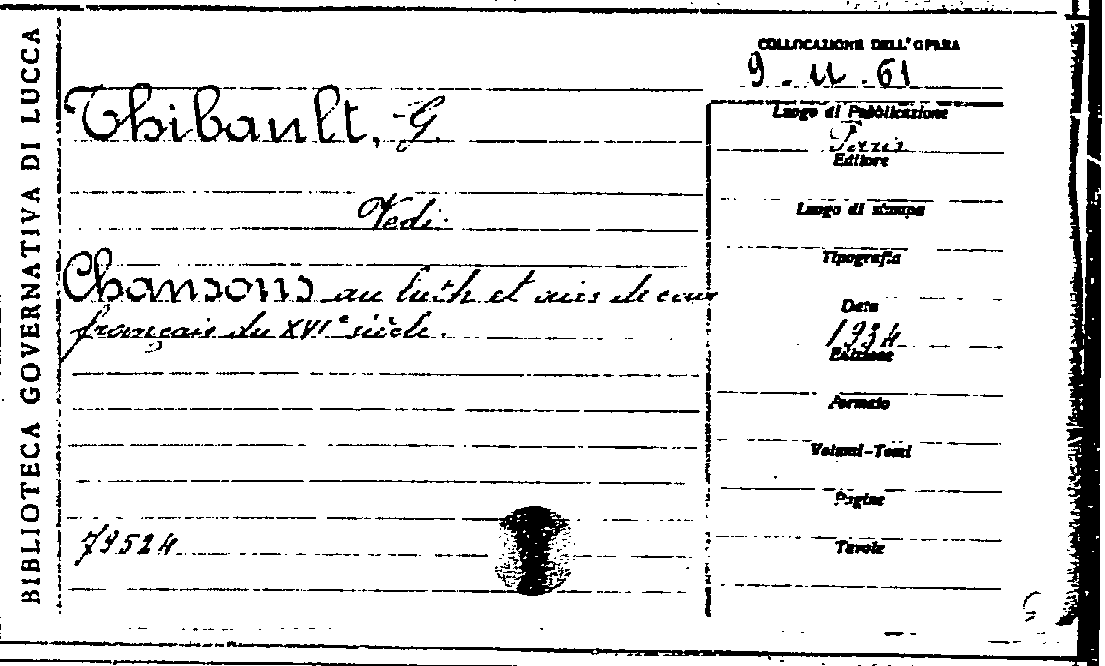 BIBLIOTECA GOVERNATIVA DI LUCCA
COLLOCAZIONE DELL'OPERA
9 - U - 61
Thibault, G.
Vedi:
Chansons au luth et airs de cour
français du XVI e siècle.
79524
Luogo di Pubblicazione
Paris
Editore
Luogo di stampa
Tipografia
Data
1934
Edizione
Formato
Volumi-Tomi
Pagine
Tavole